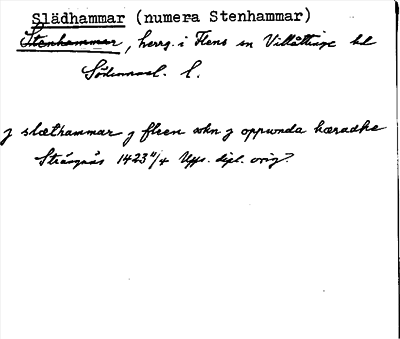 Slädhammar (numera Stenhammar)
Stenhammar, herrg. i Flens sn Villåttinge hd
Södermanl. l.
j slæthammar j fleen sokn j oppunda hæradhe
Strängnäs 1423 11/4 Upps. dipl. orig.